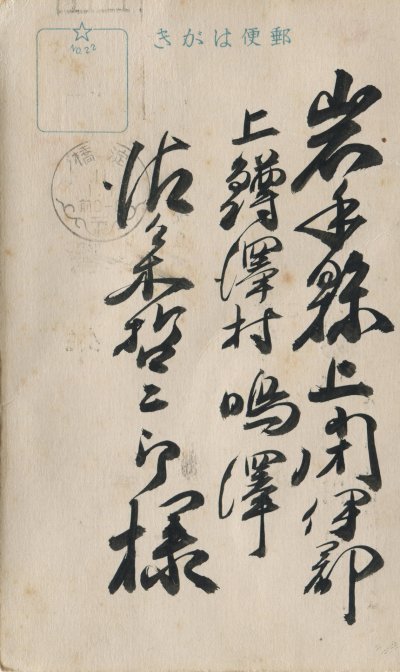 郵便はがき
10.22
岩手縣上閉伊郡
上鱒澤村 鳴澤
佐々木哲二郎様
淀橋